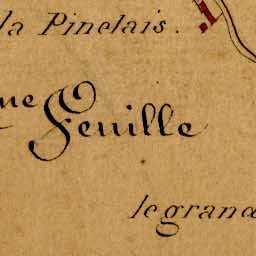 la Pinelais.
me Feuille
le grand